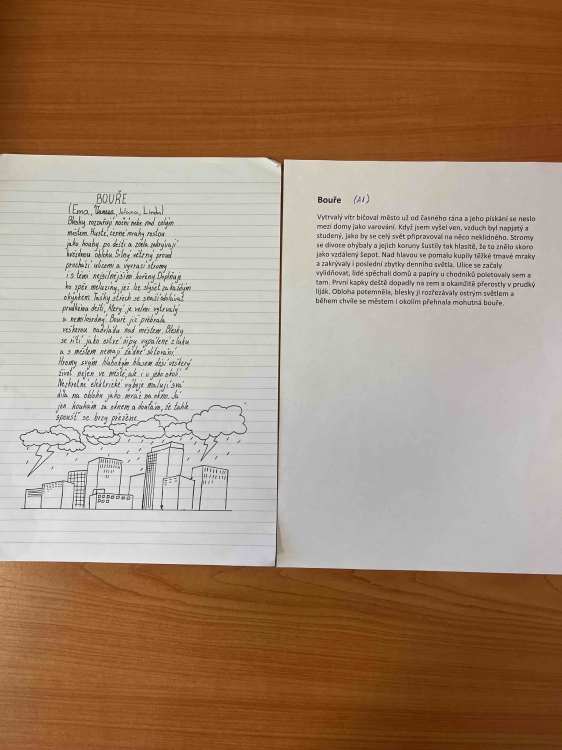 BOUŘE
(Ema, Vanesa, Johana, Linda)
Blesky rozzařují noční nebe nad celým
městem. Husté, černé mraky rostou
jako houby po dešti a zcela zakrývají
hvězdnou oblohu. Silný větrný proud
prochází ulicemi a vyvrací stromy
i s těmi nejsilnějšími kořeny. Doplňuje
ho zpěv meluzíny, jež lze slyšet za každým
okýnkem. Tašky střech se snaží odolávat
prudkému dešti, který je velmi vytrvalý
a nemilosrdný. Bouře již přebrala
veškerou nadvládu nad městem. Blesky
se řítí jako ostré šípy vypálené z luku
a s městem nemají žádné slitování.
Hromy svým hlubokým hlasem děsí veškerý
život nejen ve městě, ale i v jeho okolí.
Nezkrotné elektrické výboje malují svá
díla na oblohu jako mráz na okno. Já
jen koukám za oknem a doufám, že tahle
spoušť se brzy přežene.
Bouře (AI)
Vytrvalý vítr bičoval město už od časného rána a jeho pískání se neslo
mezi domy jako varování. Když jsem vyšel ven, vzduch byl napjatý a
studený, jako by se celý svět připravoval na něco neklidného. Stromy
se divoce ohýbaly a jejich koruny šustily tak hlasitě, že to znělo skoro
jako vzdálený šepot. Nad hlavou se pomalu kupily těžké tmavé mraky
a zakrývaly i poslední zbytky denního světla. Ulice se začaly
vylidňovat, lidé spěchali domů a papíry u chodníků poletovaly sem a
tam. První kapky deště dopadly na zem a okamžitě přerostly v prudký
liják. Obloha potemněla, blesky ji rozřezávaly ostrým světlem a
během chvíle se městem i okolím přehnala mohutná bouře.